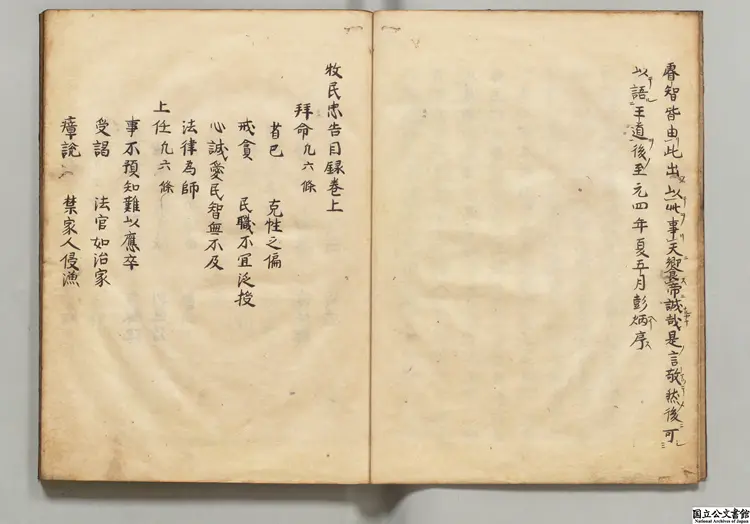 睿智皆由此出以此事天饗帝誠哉是言敬然後可
以語王道後至元四年夏五月彭炳序
牧民忠告目録巻上
拜命九六條
省己 克性之偏
戒貪 民職不冝泛授
心誠愛民智無不及
法律為師
上任九六條
事不預知難以應卒
受謁 法官如治家
瘴說 禁家人侵漁
国立公文書館
National Archives of Japan